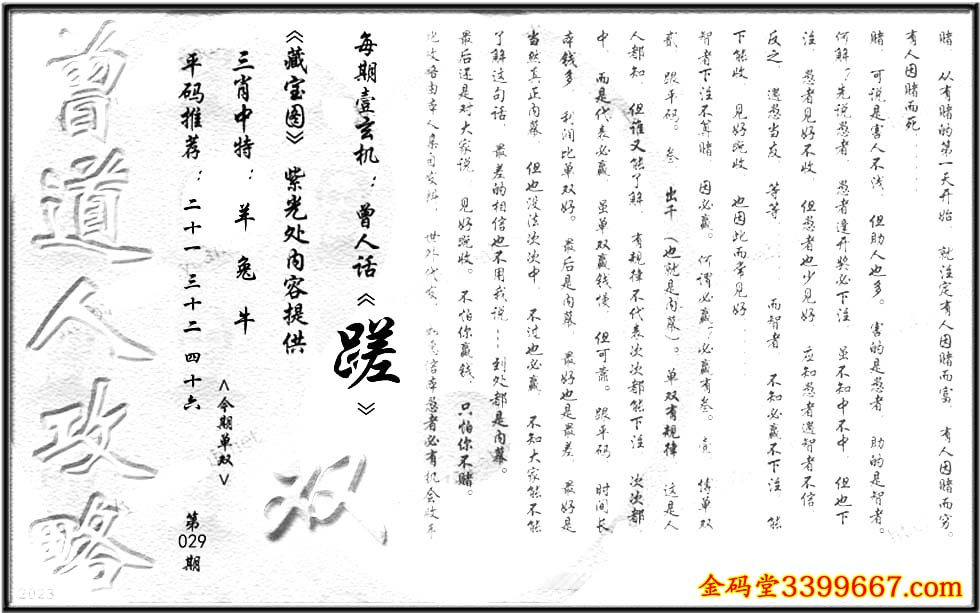 赌 从有赌的第一天开始 就注定有人因赌而富 有人因赌而穷。
有人因赌而死……
赌 可说是害人不浅 但助人也多。 害的是愚者 助的是智者。
何解?先说愚者 愚者逢开奖必下注 虽不知中不中 但也下
注 愚者见好不收 但愚者也少见好 应知愚者遇智者不信
反之 遇愚当友 等等…… 而智者 不知必赢不下注 能
下能收 见好就收 也因此而常见好……
智者下注不算赌 因必赢。 何谓必赢?必赢有叁。 壹 博单双
贰 跟平码。 叁 出千(也就是内幕)。 单双有规律 这是人
人都知 但谁又能了解 有规律不代表次次都能下注 次次都
中 而是代表必赢 虽单双赢钱慢 但可靠。 跟平码 时间长
本钱多 利润比单双好。 最后是内幕 最好也是最差 最好是
当然真正内幕 但也没法次次中 不过也必赢 不知大家能不能
了解这句话 最差的相信也不用我说……到处都是内幕。
最后还是对大家说 见好就收。 不怕你赢钱 只怕你不赌。
此攻略由本人集团安排 世外代友 者必有机会收年
每期壹玄机:曾人话《蹉》
《藏宝图》紫光处内容提供
三肖中特:羊 兔 牛
平码推荐:二十一 三十二 四十六
<今期单双>
双
第029期
曾道人攻略
2023
金码堂3399667.com